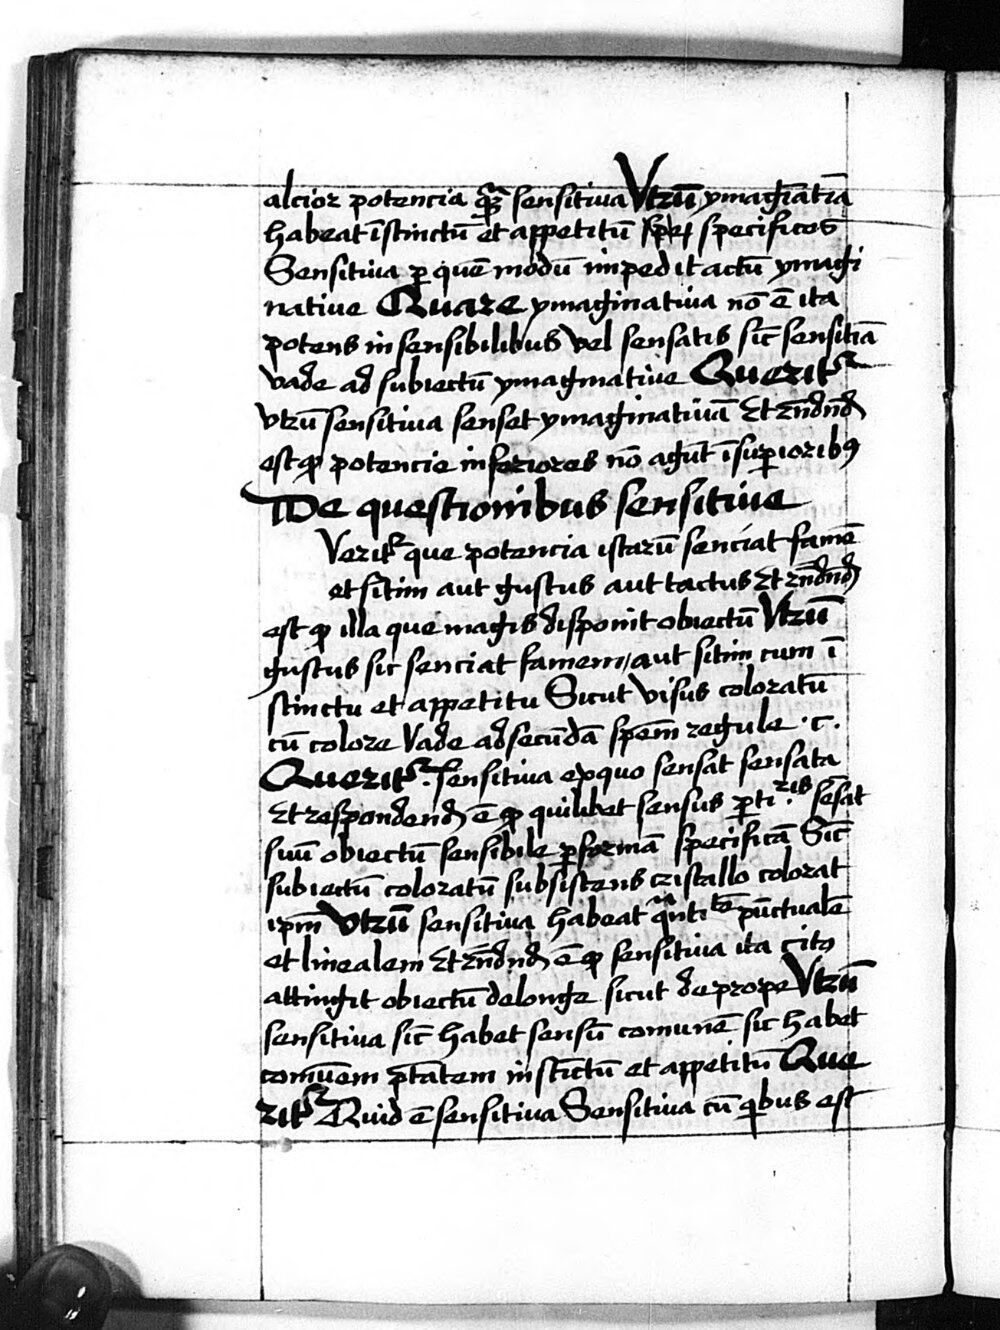 alcior potencia quã sensitiva Vtrũ ymagiatiã
habeat ĩstinctũ et appetitũ specificos
Sensitiua per quẽ modũ impedit actũ ymagi
natiue Quare ymaginatiua nõ ẽ ita
potens in sensibilibus vel sensatis sic̃ sensitiã
vade ad subiectũ ymaginatiue Querit᷑
vtrũ sensitiua senset ymaginatiuã Et rñdnd̃
est ꝙ potencie inferiores nõ agũt ĩ superioribꝰ
De questionibus sensitiue
Verit᷑ que potencia istarũ senciat famẽ
et sitim aut gustus aut tactus Et rñdnd̃
est ꝙ illa que magis disponit obiectũ Vtrũ
gustus sic senciat famem / aut sitim cum ĩ
stinctu et appetitu Sicut visus coloratũ
cũ colore Vade ad secũdã spẽm regule .c.
Querit᷑. sensitiua ex quo sensat sensata
Et respondend̃ ẽ ꝙ quilibet sensus ꝑti.ris sẽsat
suũ obiectũ sensibile ꝑ formã specificã Sic̃
subiectũ coloratũ subsistens cristallo colorat
ipm̃ Vtrũ sensitiua habeat qñtitẽ pũctualẽ
et linealem Et rñdnd̃ ẽ ꝙ sensitiua ita cito
attingit obiectũ de longe sicut de prope Vtrũ
sensitiua sic̃ habet sensũ comunẽ sic habet
comũem ptãtem instĩctũ et appetitũ Que
rit᷑ Quid ẽ sensitiua Sensitiua cũ qibus est